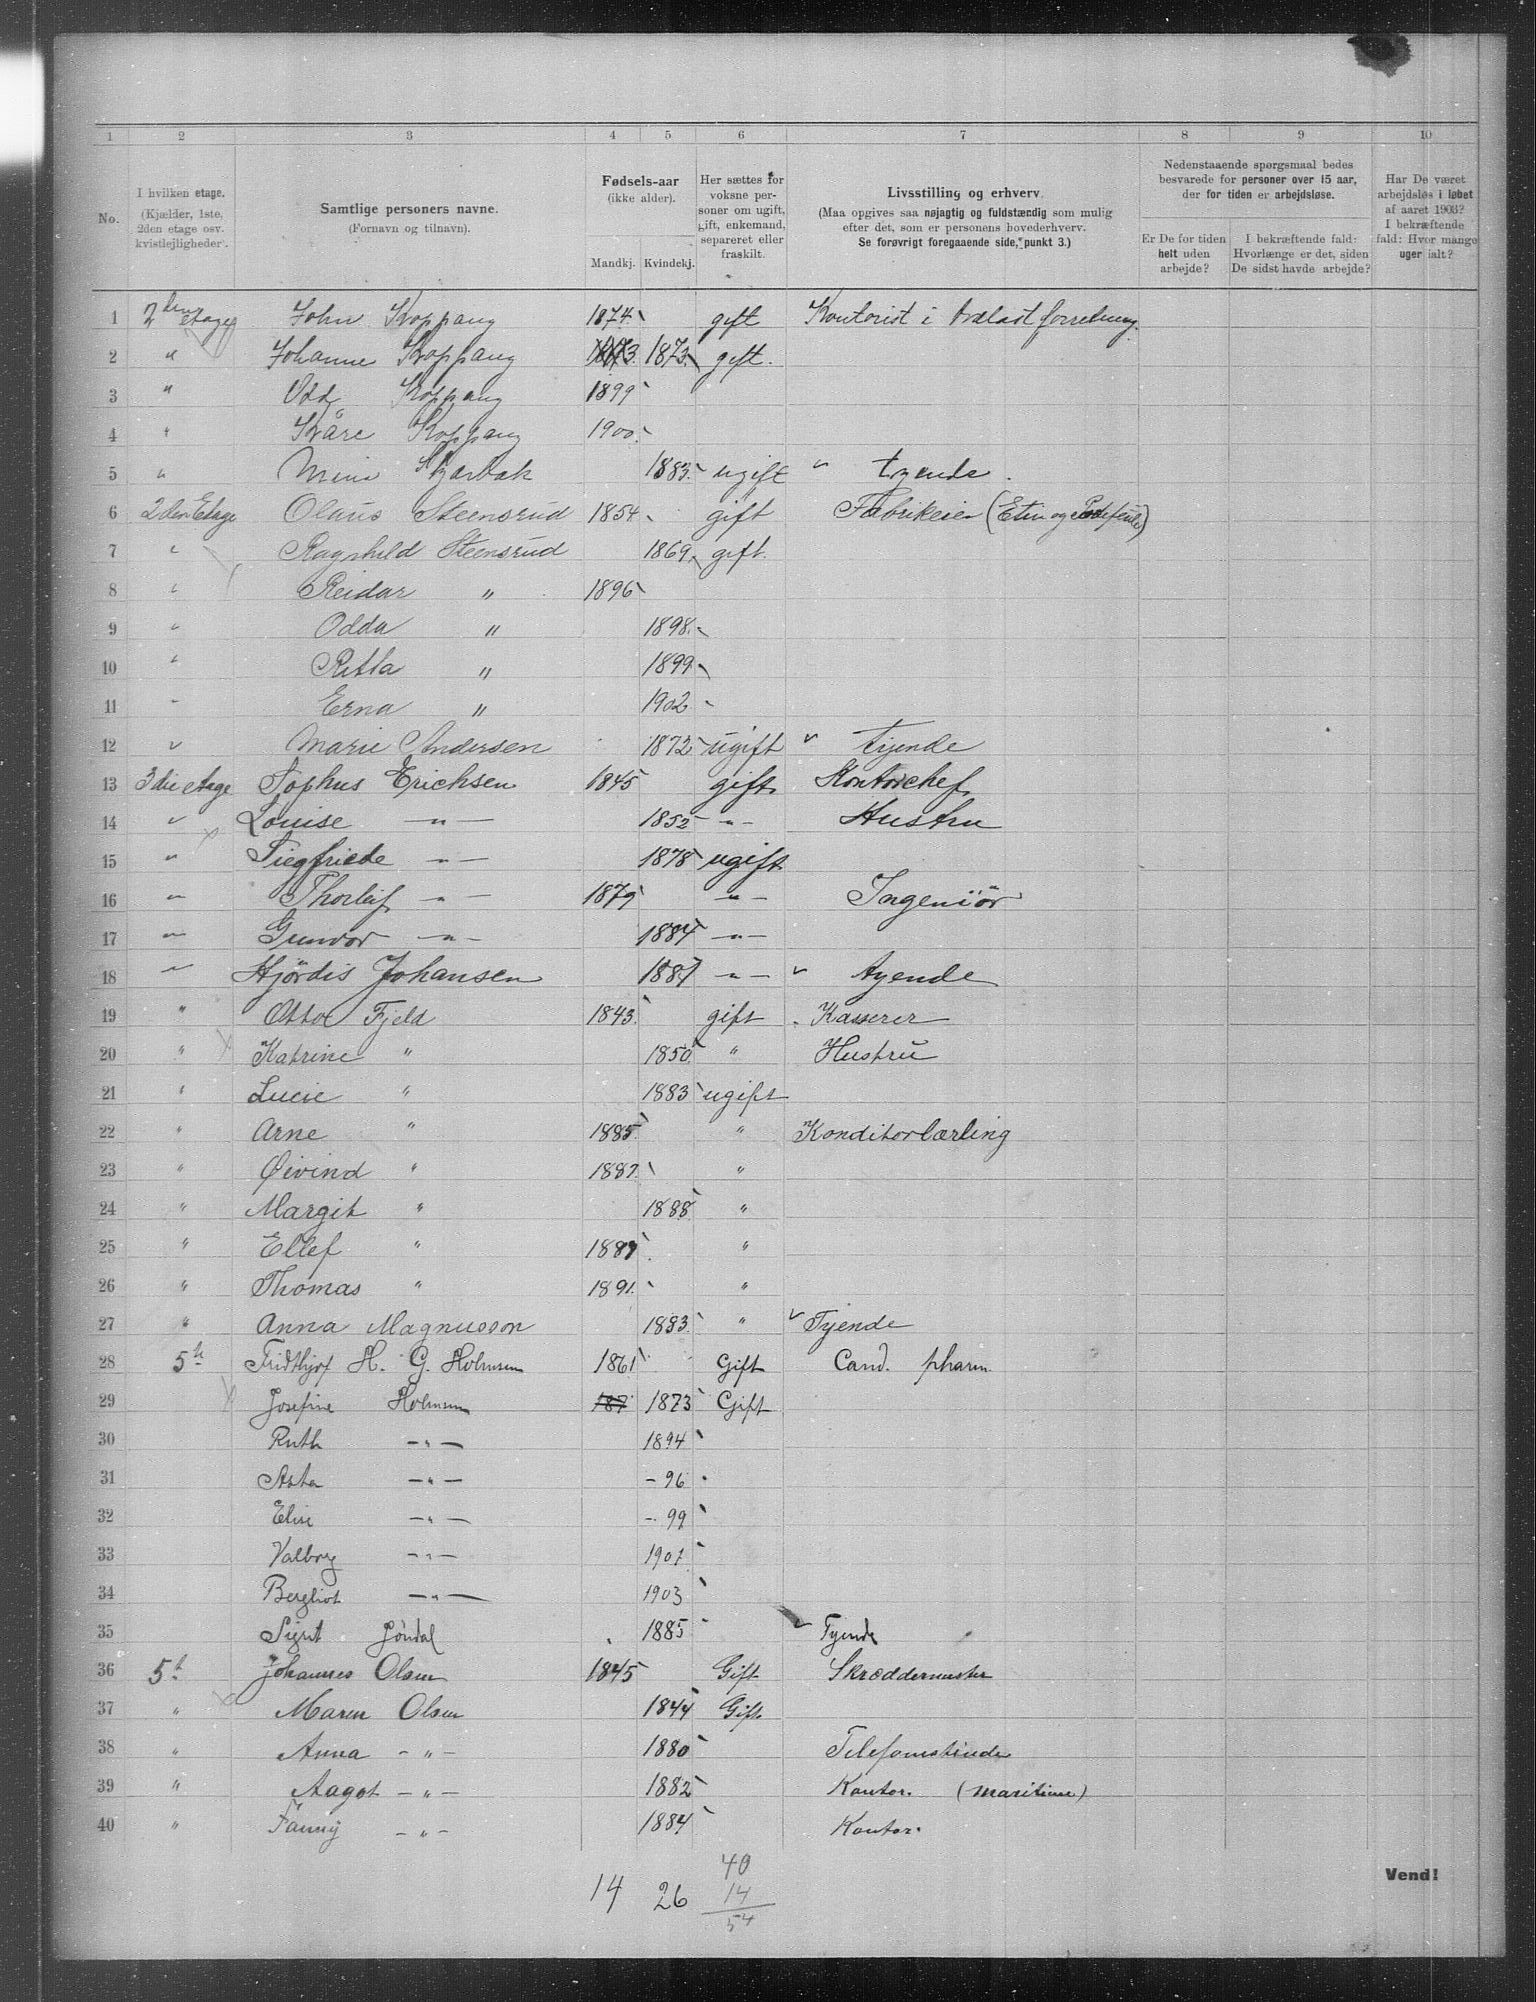 1 2 3 4 5 6 7 8 9 10
No.
I hvilken etage.
(Kjælder, 1ste,
2den etage osv.
kvistlejligheder).
Samtlige personers navne.
(Fornavn og tilnavn).
Fødsels-aar
(ikke alder).
Mandkj. Kvindekj.
Her sættes for
voksne per-
soner om ugift,
gift, enkemand,
separeret eller
fraskilt.
Livsstilling og erhverv.
(Maa opgives saa nøjagtig og fuldstændig som mulig
efter det, som er personens hovederhverv.
Se forøvrigt foregaaende side, punkt 3.)
Nedenstaaende spørgsmaal bedes
besvarede for personer over 15 aar,
der for tiden er arbejdsløse.
Er De for tiden
helt uden
arbejde?
I bekræftende fald:
Hvorlænge er det, siden
De sidst havde arbejde?
Har De været
arbejdsløs i løbet
af aaret 1903?
I bekræftende
fald: Hvor mange
uger ialt?
1 2den etage John Koppang 1874 gift Kontorist i
2 " Johanne Koppang 1873 1873 gift.
3 " Odd Koppang 1899
4 " Kåre Koppang 1900
5 " Mina 1883 ugift tyende.
6 2den Etage Olaus Steensrud 1854 gift Fabrikeier
7 " Ragnhild Steensrud 1869 gift.
8 " Reidar " 1896
9 " Odda " 1898
10 " Ritta " 1899
11 " Erna " 1902
12 " Marie Andersen 1872 ugift tyende
13 3die etage Sophus Erichsen 1845 gift Kontorchef
14 " Louise — " — 1852 — " — Hustru
15 " Siegfriede — " — 1878 ugift
16 " Thorleif — " — 1879 — " — Ingeniör
17 " Gunvor — " — 1884 — " —
18 " Hjördis Johansen 1887 — " — tyende
19 " Otto Fjeld 1843 gift Kasserer
20 " Katrine " 1850 " Hustru
21 " Lucie " 1883 ugift
22 " Arne " 1885 " Konditorlærling
23 " Øivind " 1887 "
24 " Margit " 1888 "
25 " Ellef " 1889 "
26 " Thomas " 1891 "
27 " Anna Magnusson 1883 " Tyende
28 5te Fridthjof H. G. Holmsen 1861 Gift Cand. pharm.
29 Josefine Holmsen 187 1873 Gift
30 Ruth — " — 1894
31 Asta — " — - 96
32 Elise — " — - 99
33 Valborg — " — 1901
34 Bergliot — " — 1903
35 Sigrit Jøndal 1885 Tyende
36 5te Johannes Olsen 1845 Gift Skræddermester
37 " Maren Olsen 1844 Gift.
38 " Anna — " — 1880 Telefonistinde
39 " Aagot — " — 1882 Kontor. (maritime)
40 " Fanny — " — 1884 Kontor.
14 26 40
14
54
Vend!